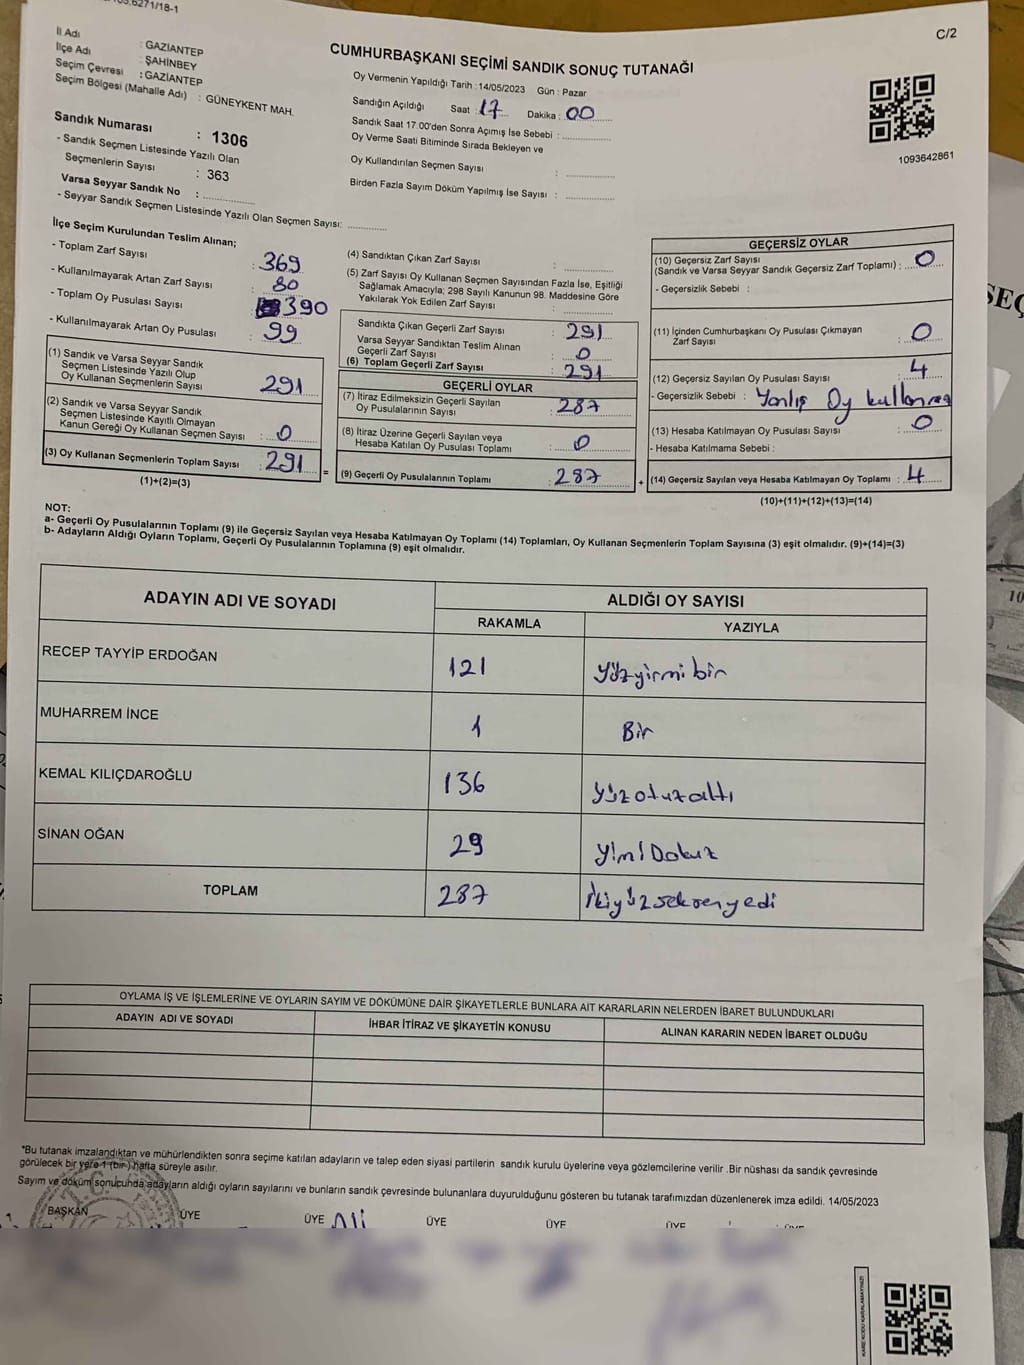 6271/18-1
C/2
İl Adı : GAZİANTEP
İlçe Adı : ŞAHİNBEY
Seçim Çevresi : GAZİANTEP
Seçim Bölgesi (Mahalle Adı) : GÜNEYKENT MAH.
Sandık Numarası : 1306
- Sandık Seçmen Listesinde Yazılı Olan
Seçmenlerin Sayısı : 363
Varsa Seyyar Sandık No :
- Seyyar Sandık Seçmen Listesinde Yazılı Olan Seçmen Sayısı:
CUMHURBAŞKANI SEÇİMİ SANDIK SONUÇ TUTANAĞI
Oy Vermenin Yapıldığı Tarih : 14/05/2023 Gün : Pazar
Sandığın Açıldığı Saat : 17 Dakika : 00
Sandık Saat 17:00'den Sonra Açımış İse Sebebi :
Oy Verme Saati Bitiminde Sırada Bekleyen ve
Oy Kullandırılan Seçmen Sayısı :
Birden Fazla Sayım Döküm Yapılmış İse Sayısı :
1093642861
İlçe Seçim Kurulundan Teslim Alınan;
- Toplam Zarf Sayısı : 369
- Kullanılmayarak Artan Zarf Sayısı : 80
- Toplam Oy Pusulası Sayısı : 390
- Kullanılmayarak Artan Oy Pusulası : 99
(1) Sandık ve Varsa Seyyar Sandık
Seçmen Listesinde Yazılı Olup
Oy Kullanan Seçmenlerin Sayısı : 291
(2) Sandık ve Varsa Seyyar Sandık
Seçmen Listesinde Kayıtlı Olmayan
Kanun Gereği Oy Kullanan Seçmen Sayısı : 0
(3) Oy Kullanan Seçmenlerin Toplam Sayısı : 291 =
(1)+(2)=(3)
(4) Sandıktan Çıkan Zarf Sayısı :
(5) Zarf Sayısı Oy Kullanan Seçmen Sayısından Fazla İse, Eşitliği
Sağlamak Amacıyla; 298 Sayılı Kanunun 98. Maddesine Göre
Yakılarak Yok Edilen Zarf Sayısı :
Sandıkta Çıkan Geçerli Zarf Sayısı : 291
Varsa Seyyar Sandıktan Teslim Alınan
Geçerli Zarf Sayısı : 0
(6) Toplam Geçerli Zarf Sayısı : 291
GEÇERLİ OYLAR
(7) İtiraz Edilmeksizin Geçerli Sayılan
Oy Pusulalarının Sayısı : 287
(8) İtiraz Üzerine Geçerli Sayılan veya
Hesaba Katılan Oy Pusulası Toplamı : 0
(9) Geçerli Oy Pusulalarının Toplamı : 287 +
GEÇERSİZ OYLAR
(10) Geçersiz Zarf Sayısı
(Sandık ve Varsa Seyyar Sandık Geçersiz Zarf Toplamı) : 0
- Geçersizlik Sebebi :
(11) İçinden Cumhurbaşkanı Oy Pusulası Çıkmayan
Zarf Sayısı : 0
(12) Geçersiz Sayılan Oy Pusulası Sayısı : 4
- Geçersizlik Sebebi : Yanlış Oy kullanma
(13) Hesaba Katılmayan Oy Pusulası Sayısı : 0
- Hesaba Katılmama Sebebi :
(14) Geçersiz Sayılan veya Hesaba Katılmayan Oy Toplamı : 4
(10)+(11)+(12)+(13)=(14)
NOT:
a- Geçerli Oy Pusulalarının Toplamı (9) ile Geçersiz Sayılan veya Hesaba Katılmayan Oy Toplamı (14) Toplamları, Oy Kullanan Seçmenlerin Toplam Sayısına (3) eşit olmalıdır. (9)+(14)=(3)
b- Adayların Aldığı Oyların Toplamı, Geçerli Oy Pusulalarının Toplamına (9) eşit olmalıdır.
ADAYIN ADI VE SOYADI ALDIĞI OY SAYISI
RAKAMLA YAZIYLA
RECEP TAYYİP ERDOĞAN 121 yüzyirmi bir
MUHARREM İNCE 1 Bir
KEMAL KILIÇDAROĞLU 136 yüzotuzaltı
SİNAN OĞAN 29 yimiDokuz
TOPLAM 287 ikiyüzseksenyedi
OYLAMA İŞ VE İŞLEMLERİNE VE OYLARIN SAYIM VE DÖKÜMÜNE DAİR ŞİKAYETLERLE BUNLARA AIT KARARLARIN NELERDEN İBARET BULUNDUKLARI
ADAYIN ADI VE SOYADI İHBAR İTİRAZ VE ŞİKAYETİN KONUSU ALINAN KARARIN NEDEN İBARET OLDUĞU
*Bu tutanak imzalandıktan ve mühürlendikten sonra seçime katılan adayların ve talep eden siyasi partilerin sandık kurulu üyelerine veya gözlemcilerine verilir .Bir nüshası da sandık çevresinde
görülecek bir yere 1 (bir) hafta süreyle asılır.
Sayım ve döküm sonucunda adayların aldığı oyların sayılarını ve bunların sandık çevresinde bulunanlara duyurulduğunu gösteren bu tutanak tarafımızdan düzenlenerek imza edildi. 14/05/2023
BAŞKAN ÜYE ÜYE Ali ÜYE ÜYE ÜYE ÜYE
SEÇ
10
KARE KODU KARALAMAYINIZ!